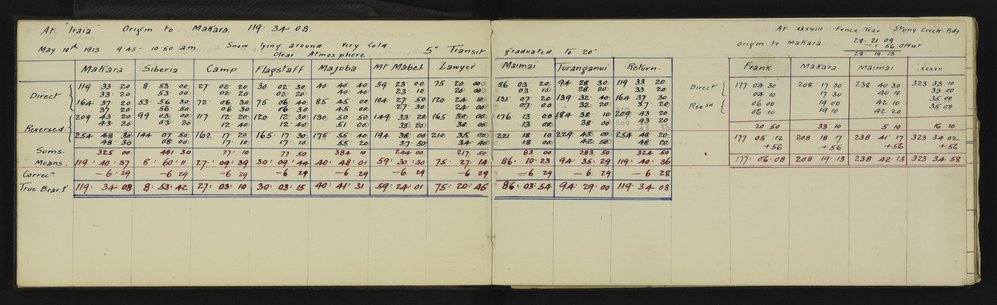 At "Iraia" Origin to Makara 119·34·08.
May 10th 1913 9·45 - 10·50 am Snow lying around Very Cold
Clear Atmosphere
5" Transit graduated to 20"
Makara Siberia Camp Flagstaff Majuba Mt Mabel Lawyer Maimai Turanganui Return
Direct 119 33 20 8 53 00 27 02 20 30 02 30 40 40 40 59 23 00 75 20 00 86 03 20 94 28 30 119 33 20
33 20 53 00 02 20 02 20 40 40 23 10 20 00 03 10 28 20 33 20
164 37 20 53 56 30 72 06 30 75 06 40 85 45 00 104 27 50 120 24 10 131 07 20 139 32 40 164 37 30
37 20 56 50 06 30 06 30 45 00 27 30 24 00 07 00 32 20 37 20
209 43 20 99 03 00 117 12 20 120 12 30 130 50 50 149 33 20 165 30 00 176 13 00 184 38 10 209 43 20
43 20 03 20 12 40 12 40 51 00 33 20 30 00 13 00 38 00 43 20
Reversed 254 48 30 144 07 50 162 17 20 165 17 30 175 55 40 194 38 00 210 35 00 221 18 10 229 43 00 254 48 20
48 30 08 00 17 10 17 10 55 20 37 50 34 40 18 00 42 50 48 20
Sums 325 00 481 30 77 10 77 50 384 10 244 00 217 50 83 00 283 50 324 50
Means 119·40·37 8·60·11 27·09·39 30·09·44 40·48·01 59·30·30 75·27·14 86·10·23 94·35·29 119·40·36
Correcn —6·29 —6·29 —6·29 —6·29 —6·29 —6·29 —6·29 —6·29 —6·29 —6·28
True Bearg 119·34·08 8·53·42 27·03·10 30·03·15 40·41·31 59·24·01 75·20·45 86·03·54 94·29·00 119·34·08
At xxxviii Fence Trav Stony Creek Bdy
Origin to Makara 28·21·09
1·56 Offset
28·19·13
Frank Makara Maimai xxxvii
Direct 177 05 30 208 17 30 238 40 30 323 33 10
04 10 17 30 40 10 33 00
Revsd 06 00 19 00 42 10 35 00
06 10 19 10 42 20 35 00
20 50 33 10 5 10 16 10
177 05 12 208 18 17 238 41 17 323 34 02
+56 +56 +56 +56
177·06·08 208·19·13 238·42·13 323·34·58